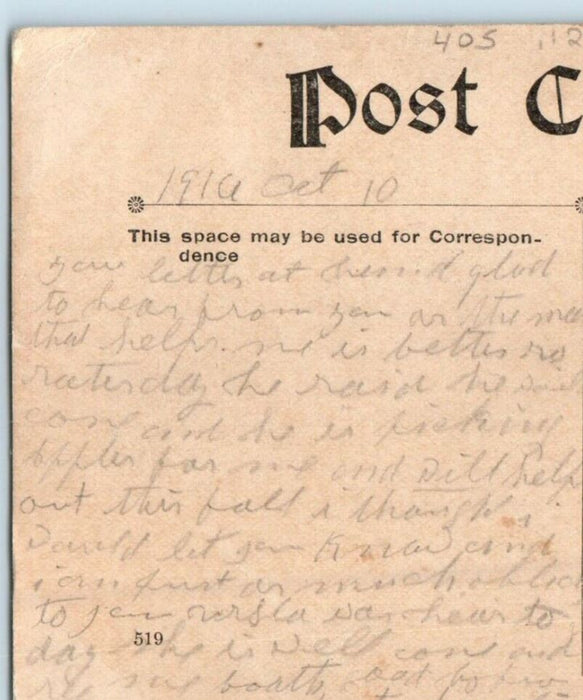 405
Post C
1916 Oct 10
This space may be used for Correspon-
dence
your letter at hand glad
to hear from you as the man
that helps me is better so
saterday he said he
come and he is picking
apples for me and will help
out this fall i thought i
would let you know and
i am just as much
to you was hear to
519
day he is well and